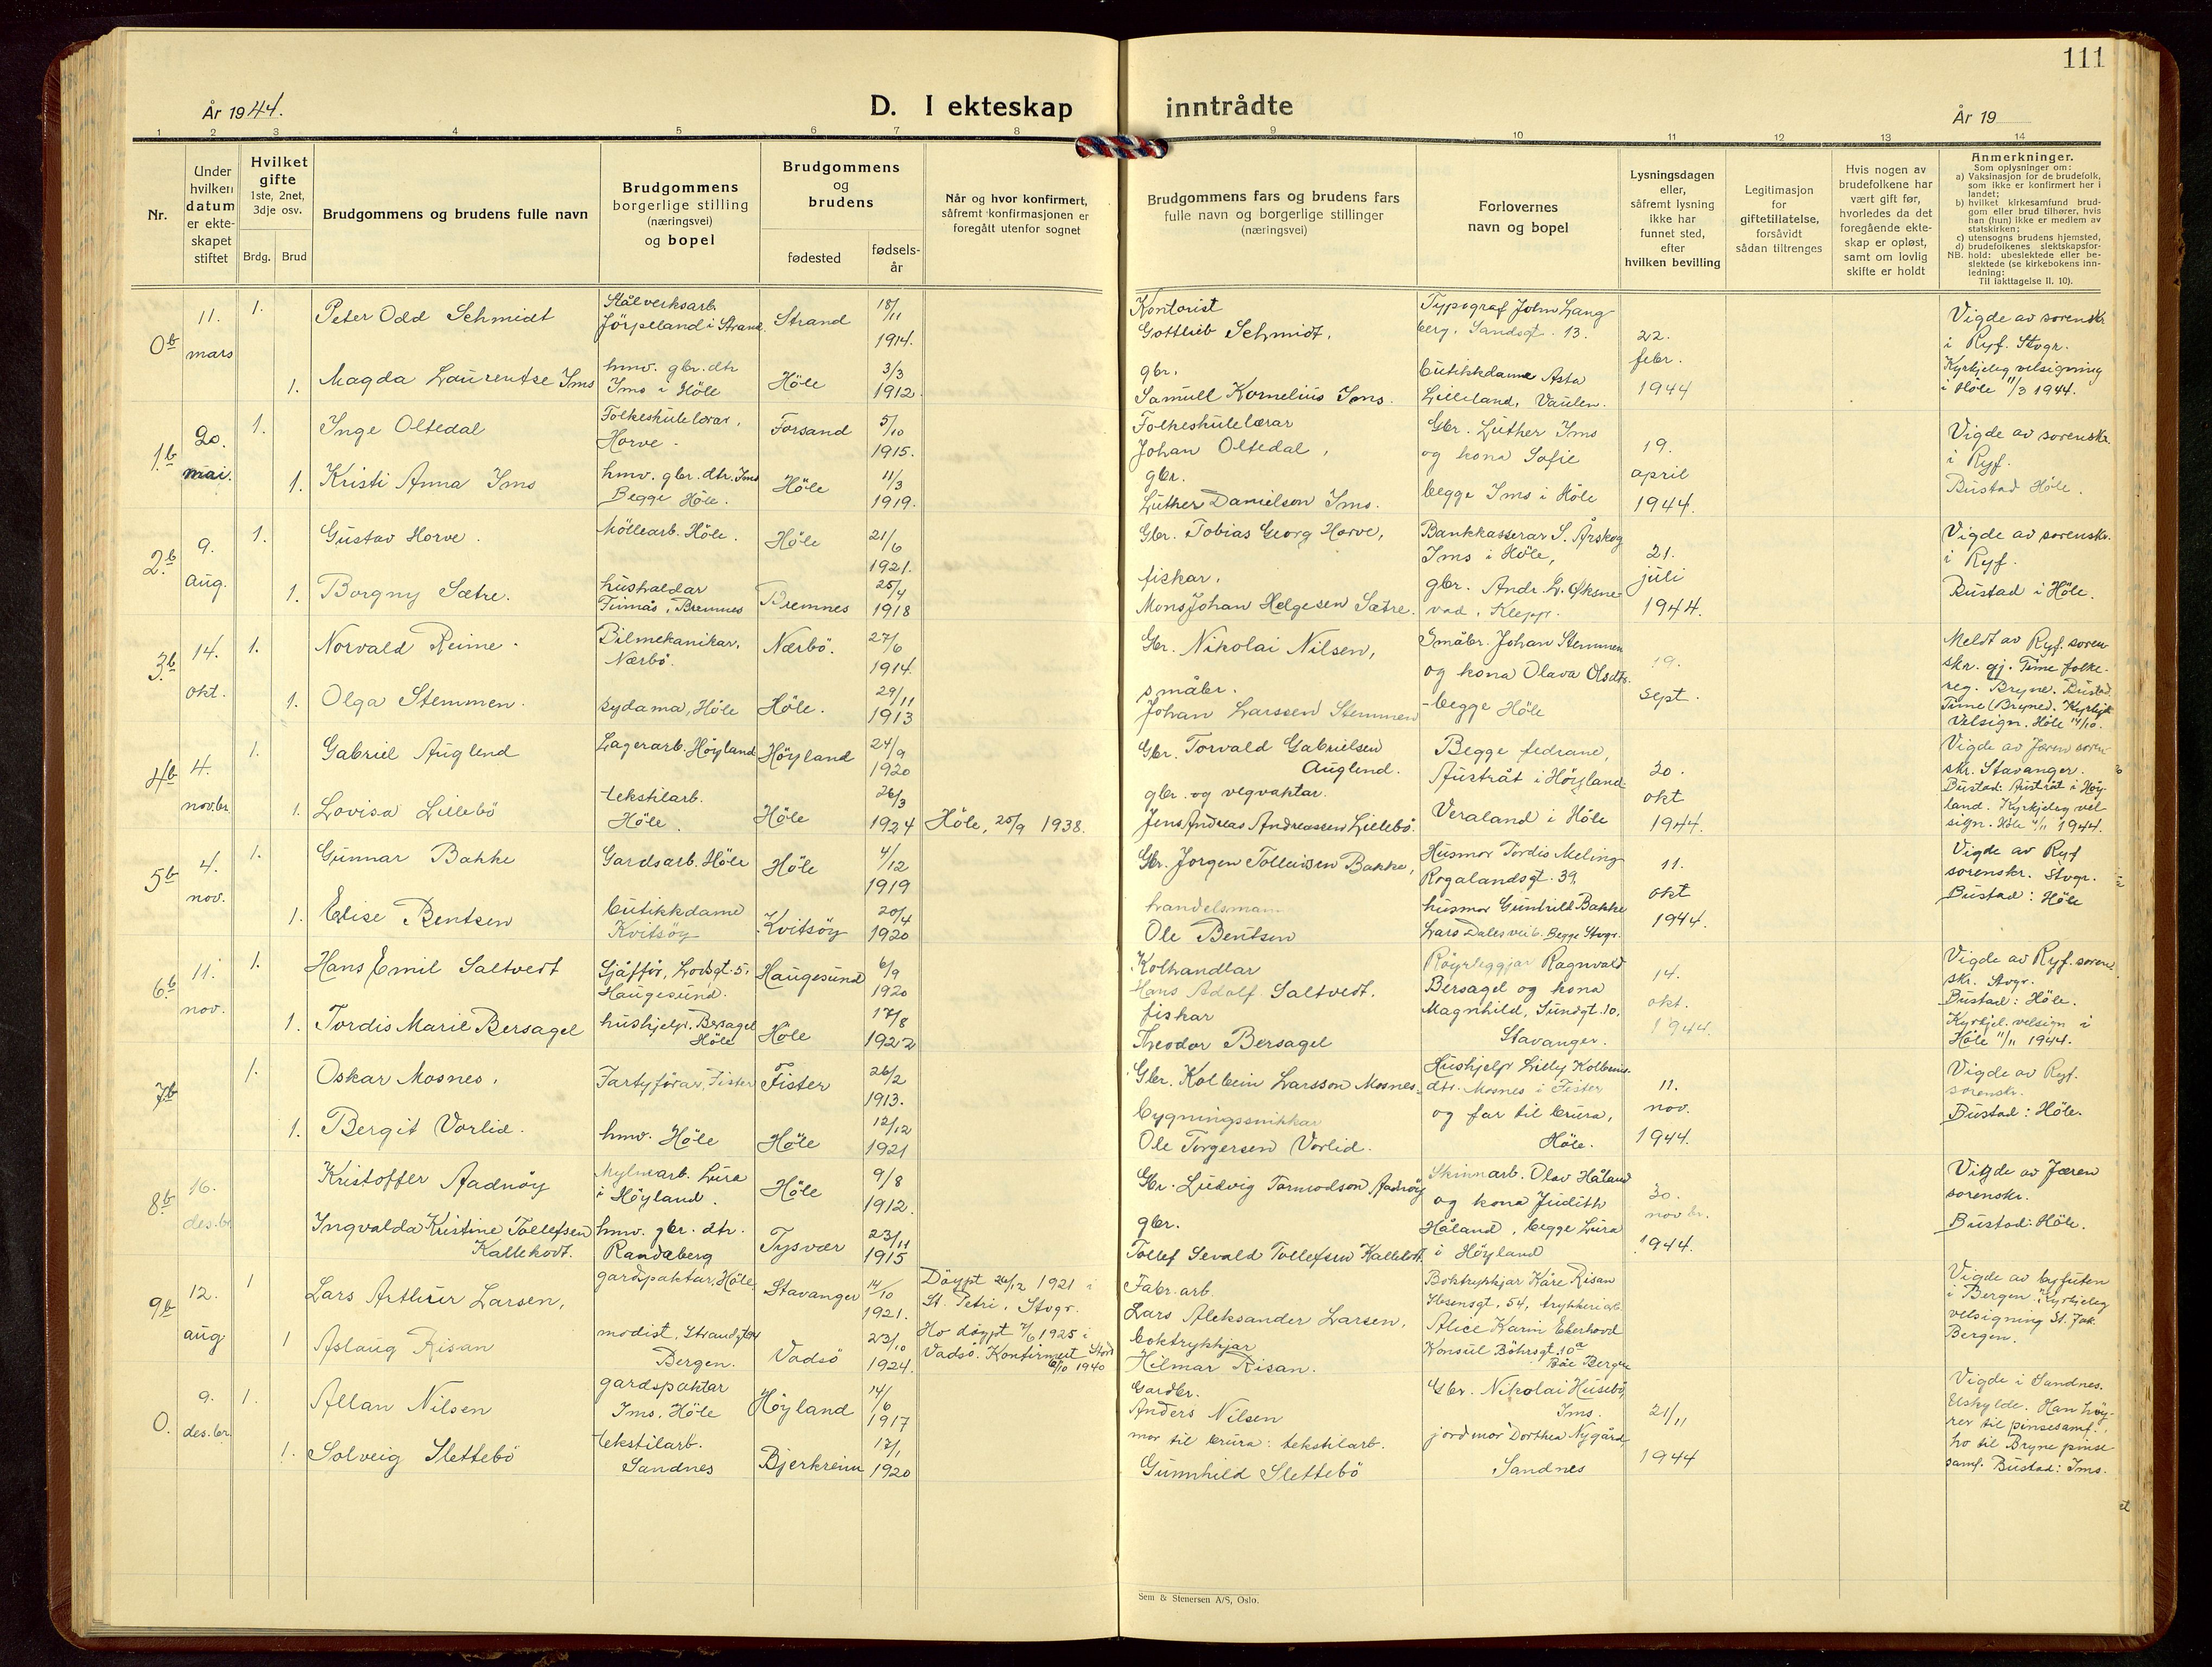 111
År 1944.
D. I ekteskap inntrådte
År 19
1 2 3 4 5 6 7 8 9 10 11 12 13 14
Nr.
Under
hvilken
datum
er ekte-
skapet
stiftet
Hvilket
gifte
1ste, 2net,
3dje osv.
Brdg. Brud
Brudgommens og brudens fulle navn
Brudgommens
borgerlige stilling
(næringsvei)
og bopel
Brudgommens
og
brudens
fødested
fødsels-
år
Når og hvor konfirmert,
såfremt konfirmasjonen er
foregått utenfor sognet
Brudgommens fars og brudens fars
fulle navn og borgerlige stillinger
(næringsvei)
Forlovernes
navn og bopel
Lysningsdagen
eller,
såfremt lysning
ikke har
funnet sted,
efter
hvilken bevilling
Legitimasjon
for
giftetillatelse,
forsåvidt
sådan tiltrenges
Hvis nogen av
brudefolkene har
vært gift før,
hvorledes da det
foregående ekte-
skap er opløst,
samt om lovlig
skifte er holdt
Anmerkninger.
Som oplysninger om:
a) Vaksinasjon for de brudefolk,
som ikke er konfirmert her i
landet;
b) hvilket kirkesamfund brud-
gom eller brud tilhører, hvis
han (hun) ikke er medlem av
statskirken;
c) utensogns brudens hjemsted,
d) brudefolkenes slektskapsfor-
NB. hold: ubeslektede eller be-
slektede (se kirkebokens inn-
ledning:
Til iakttagelse II. 10).
0b
11.
mars
1.
Peter Odd Schmidt
Stålverksarb.
Jörpeland i Strand.
Strand
18/11
1914.
Kontorist
Gottlieb Schmidt.
Typograf John Lang-
berg, Sandsgt. 13.
22.
febr.
1944
Vigde av sorenskr
i Ryf. Stvgr.
Kyrkjeleg velsigning
i Höle 11/3 1944.
1.
Magda Laurentse Ims
hmv. gbr. dtr
Ims i Höle
Höle
3/3
1912.
gbr.
Samuel Kornelius Ims.
butikkdame Asta
Lilleland, Vaulen.
1b
20.
mai.
1.
Inge Oltedal
Folkeskulelærar,
Horve
Forsand
5/10
1915.
Folkeskulelærar
Johan Oltedal,
Gbr. Luther Ims
og kona Sofie
19.
april
1944.
Vigde av sorenskr.
i Ryf.
Bustad Höle.
1.
Kristi Anna Ims
hmv. gbr. dtr. Ims
Begge Höle.
Höle
11/3
1919.
gbr.
Luther Danielsen Ims.
begge Ims i Höle
2b
9.
aug.
1.
Gustav Horve.
Möllearb. Höle.
Höle
21/6
1921.
Gbr. Tobias Georg Horve,
Bankkasserar S. Årskog
Ims i Höle,
21.
juli
1944.
Vigde av sorenskr.
i Ryf.
Bustad i Höle.
1.
Borgny Sætre.
hushaldar
Bremnes
Bremnes
25/4
1918
fiskar,
Mons Johan Helgesen Sætre.
gbr. Andr. L. Øksne-
vad, Klepp.
3b
14.
okt.
1.
Norvald Reime.
Bilmekanikar,
Nærbö.
Nærbö.
27/6
1914.
Gbr. Nikolai Nilsen,
Småbr. Johan Stemmen
og kona Olava Olsdtr.
19.
sept.
Meldt av Ryf. soren-
skr. gj. Time folke-
reg. Bryne. Bustad
Time (Bryne). Kyrkjel.
Velsign. Höle 14/10.
1.
Olga Stemmen.
sydama, Höle
Höle.
29/11
1913
småbr.
Johan Larssen Stemmen
begge Höle
4b
4.
novbr.
1.
Gabriel Auglend
Lagerarb. Höyland
Höyland
24/9
1920
Gbr. Torvald Gabrielsen
Auglend.
Begge fedrane,
Austråt i Höyland
30.
okt
1944.
Vigde av Jæren soren-
skr. Stavanger.
Bustad: Austråt i Höy-
land. Kyrkjeleg vel-
sign. Höle 4/11 1944.
1.
Lovisa Lillebö
tekstilarb.
Höle.
Höle
26/3
1924
Höle, 25/9 1938.
gbr. og vegvaktar.
Jens Andreas Andreassen Lillebö.
Veraland i Höle
5b
4.
nov.
1.
Gunnar Bakke
Gardsarb. Höle
Höle
4/12
1919
Gbr. Jorgen Tolleivsen Bakke,
Husmor Tordis Meling
Rogalandsgt. 39,
11.
okt
1944.
Vigde av Ryf
sorenskr. Stvgr.
Bustad: Höle
1.
Elise Bentsen
butikkdame
Kvitsöy
Kvitsöy
20/4
1920
handelsmann
Ole Bentsen
husmor Gunhild Bakke
Lars Dales vei 6. Begge Stvgr.
6b
11.
nov.
1.
Hans Emil Saltvedt
Sjåfför, Lodsgt. 5,
Haugesund.
Haugesund
6/9
1920
Kolhandlar
Hans Adolf Saltvedt.
Röyrleggjar Ragnvald
Bersagel og kona
14.
okt.
1944.
Vigde av Ryf. soren-
skr. Stvgr.
Bustad: Höle.
Kyrkjel. velsign i
Höle 11/11 1944.
1.
Tordis Marie Bersagel
hushjelp, Bersagel
Höle
Höle
17/8
1922
fiskar
Theodor Bersagel
Magnhild, Sundgt. 10,
Stavanger.
7b
1.
Oskar Mosnes,
Fartyförar, Fister
Fister
26/2
1913.
Gbr. Kolbein Larsson Mosnes.
Hushjelp Lilly Kolbeins-
dtr. Mosnes i Fister
11.
nov.
1944.
Vigde av Ryf.
sorenskr.
Bustad: Höle.
1.
Bergit Vorlid.
hmv. Höle
Höle
12/12
1921
bygningssnikkar
Ole Torgersen Vorlid.
og far til brura,
Höle.
8b
16.
des.br
Kristoffer Aadnöy
Mylnearb. Lura
i Höyland.
Höle
9/8
1912.
Gbr. Ludvig Tormodson Aadnöy
Skinnarb. Olav Håland
og kona Judith
30.
novbr.
1944.
Vigde av Jæren
sorenskr.
Bustad: Höle.
Ingvalda Kristine Tollefsen
Kallekodt.
hmv. gbr. dtr.
Randaberg
Tysvær
23/11
1915
gbr.
Tollef Sevald Tollefsen Kallekodt.
Håland, begge Lura
i Höyland
9b
12.
aug
1
Lars Arthur Larsen,
gardpaktar, Höle
Stavanger
14/10
1921.
Döypt 26/12 1921 i
St. Petri, Stvgr.
Fabr. arb.
Lars Aleksander Larsen,
Boktrykkjar Kåre Risan
Ibsensgt. 54, trykkeriarb.
Vigde av byfuten
i Bergen. Kyrkjeleg
velsigning St. Jak.
Bergen.
1
Aslaug Risan
modist, Strandgt 94
Bergen.
Vadsö
23/10
1924.
Ho döypt 7/6 1925 i
Vadsö. Konfirmert Stord
6/10 1940
boktrykkjar
Hilmar Risan.
Alice Karin Ekerhovd
Konsul Böhrsgt. 10a
Båe Bergen
0.
9.
des.br
1.
Allan Nilsen
gardspaktar
Ims, Höle
Höyland
14/6
1917
Gardbr.
Anders Nilsen
Gbr. Nikolai Husebö,
Ims.
21/11
1944
Vigde i Sandnes.
Uskylde. Han höy-
rer til pinsesamf.,
ho til Bryne pinse
samf. Bustad: Ims.
1.
Solveig Slettebö
tekstilarb.
Sandnes
Bjerkreim
12/1
1920
mor til brura: tekstilarb.
Gunnhild Slettebö
jordmor Dorthea Nygård,
Sandnes
Sem & Stenersen A/S, Oslo.